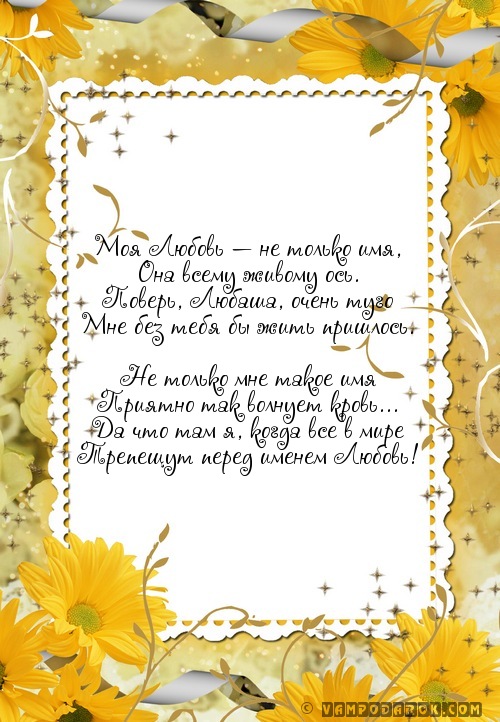 Моя Любовь — не только имя,
Она всему живому ось.
Поверь, Любаша, очень туго
Мне без тебя бы жить пришлось.
Не только мне такое имя
Приятно так волнует кровь...
Да что там я, когда все в мире
Трепещут перед именем Любовь!
© VAMPODAROK.COM